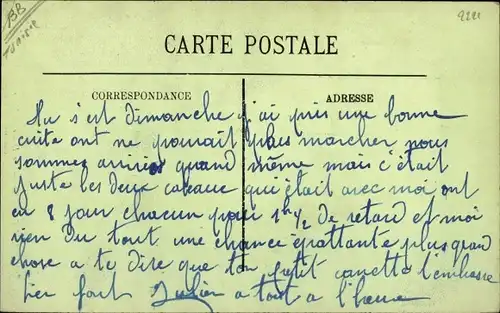 BB
TUNISIE
9221
CARTE POSTALE
CORRESPONDANCE
ADRESSE
s'est dimanche j'ai pris une bonne
cuite ont ne pouvait plus marcher nous
sommes arrivés quand même mais c'était
juste les deux cabeaux qui était avec moi ont
eu 8 jour chacun pour 1h 1/2 de retard et moi
rien du tout une chance épattante plus grand
chose a te dire que ton petit canette t'embrasse
bien fort Julien a tout a l'heure